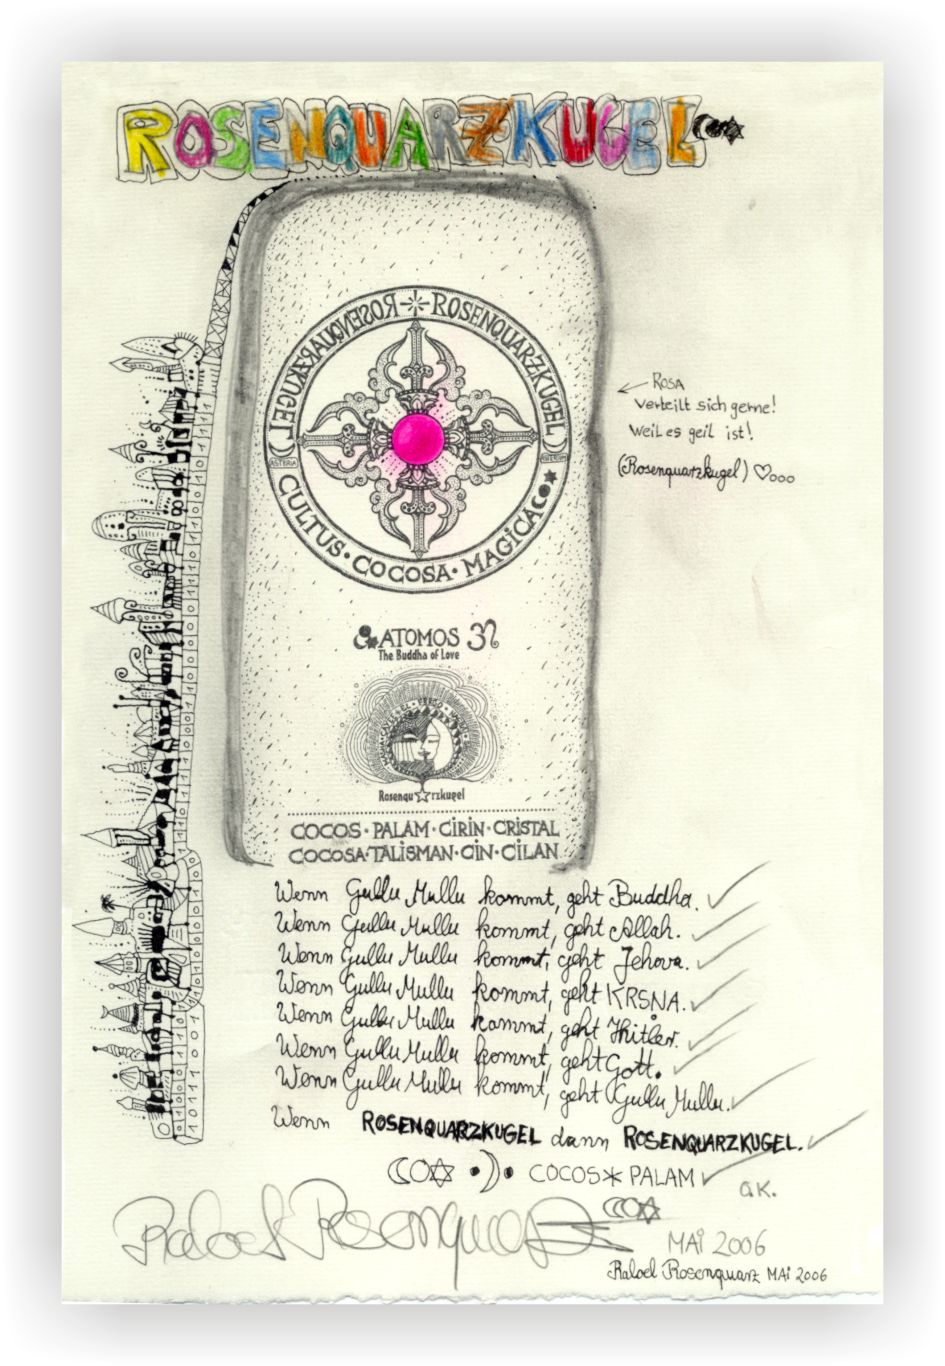 ROSENQUARZKUGEL
ROSENQUARZKUGEL
ROSENQUARZKUGEL
ASTERIA
CULTUS · COCOSA · MAGICA
Rosa
verteilt sich gerne!
Weil es geil ist!
(Rosenquarzkugel) ♡ooo
ATOMOS
The Buddha of Love
Rosenqu☆rzkugel
COCOS · PALAM · CIRIN · CRISTAL
COCOSA · TALISMAN · CIN · CILAN
Wenn Gullu Mullu kommt, geht Buddha. ✓
Wenn Gullu Mullu kommt, geht Allah. ✓
Wenn Gullu Mullu kommt, geht Jehova. ✓
Wenn Gullu Mullu kommt, geht KRSNA. ✓
Wenn Gullu Mullu kommt, geht Hitler. ✓
Wenn Gullu Mullu kommt, geht Gott. ✓
Wenn Gullu Mullu kommt, geht Gullu Mullu. ✓
Wenn ROSENQUARZKUGEL dann ROSENQUARZKUGEL. ✓
COCOS PALAM ✓
O.K.
Raloel Rosenquarz
MAI 2006
Raloel Rosenquarz MAI 2006